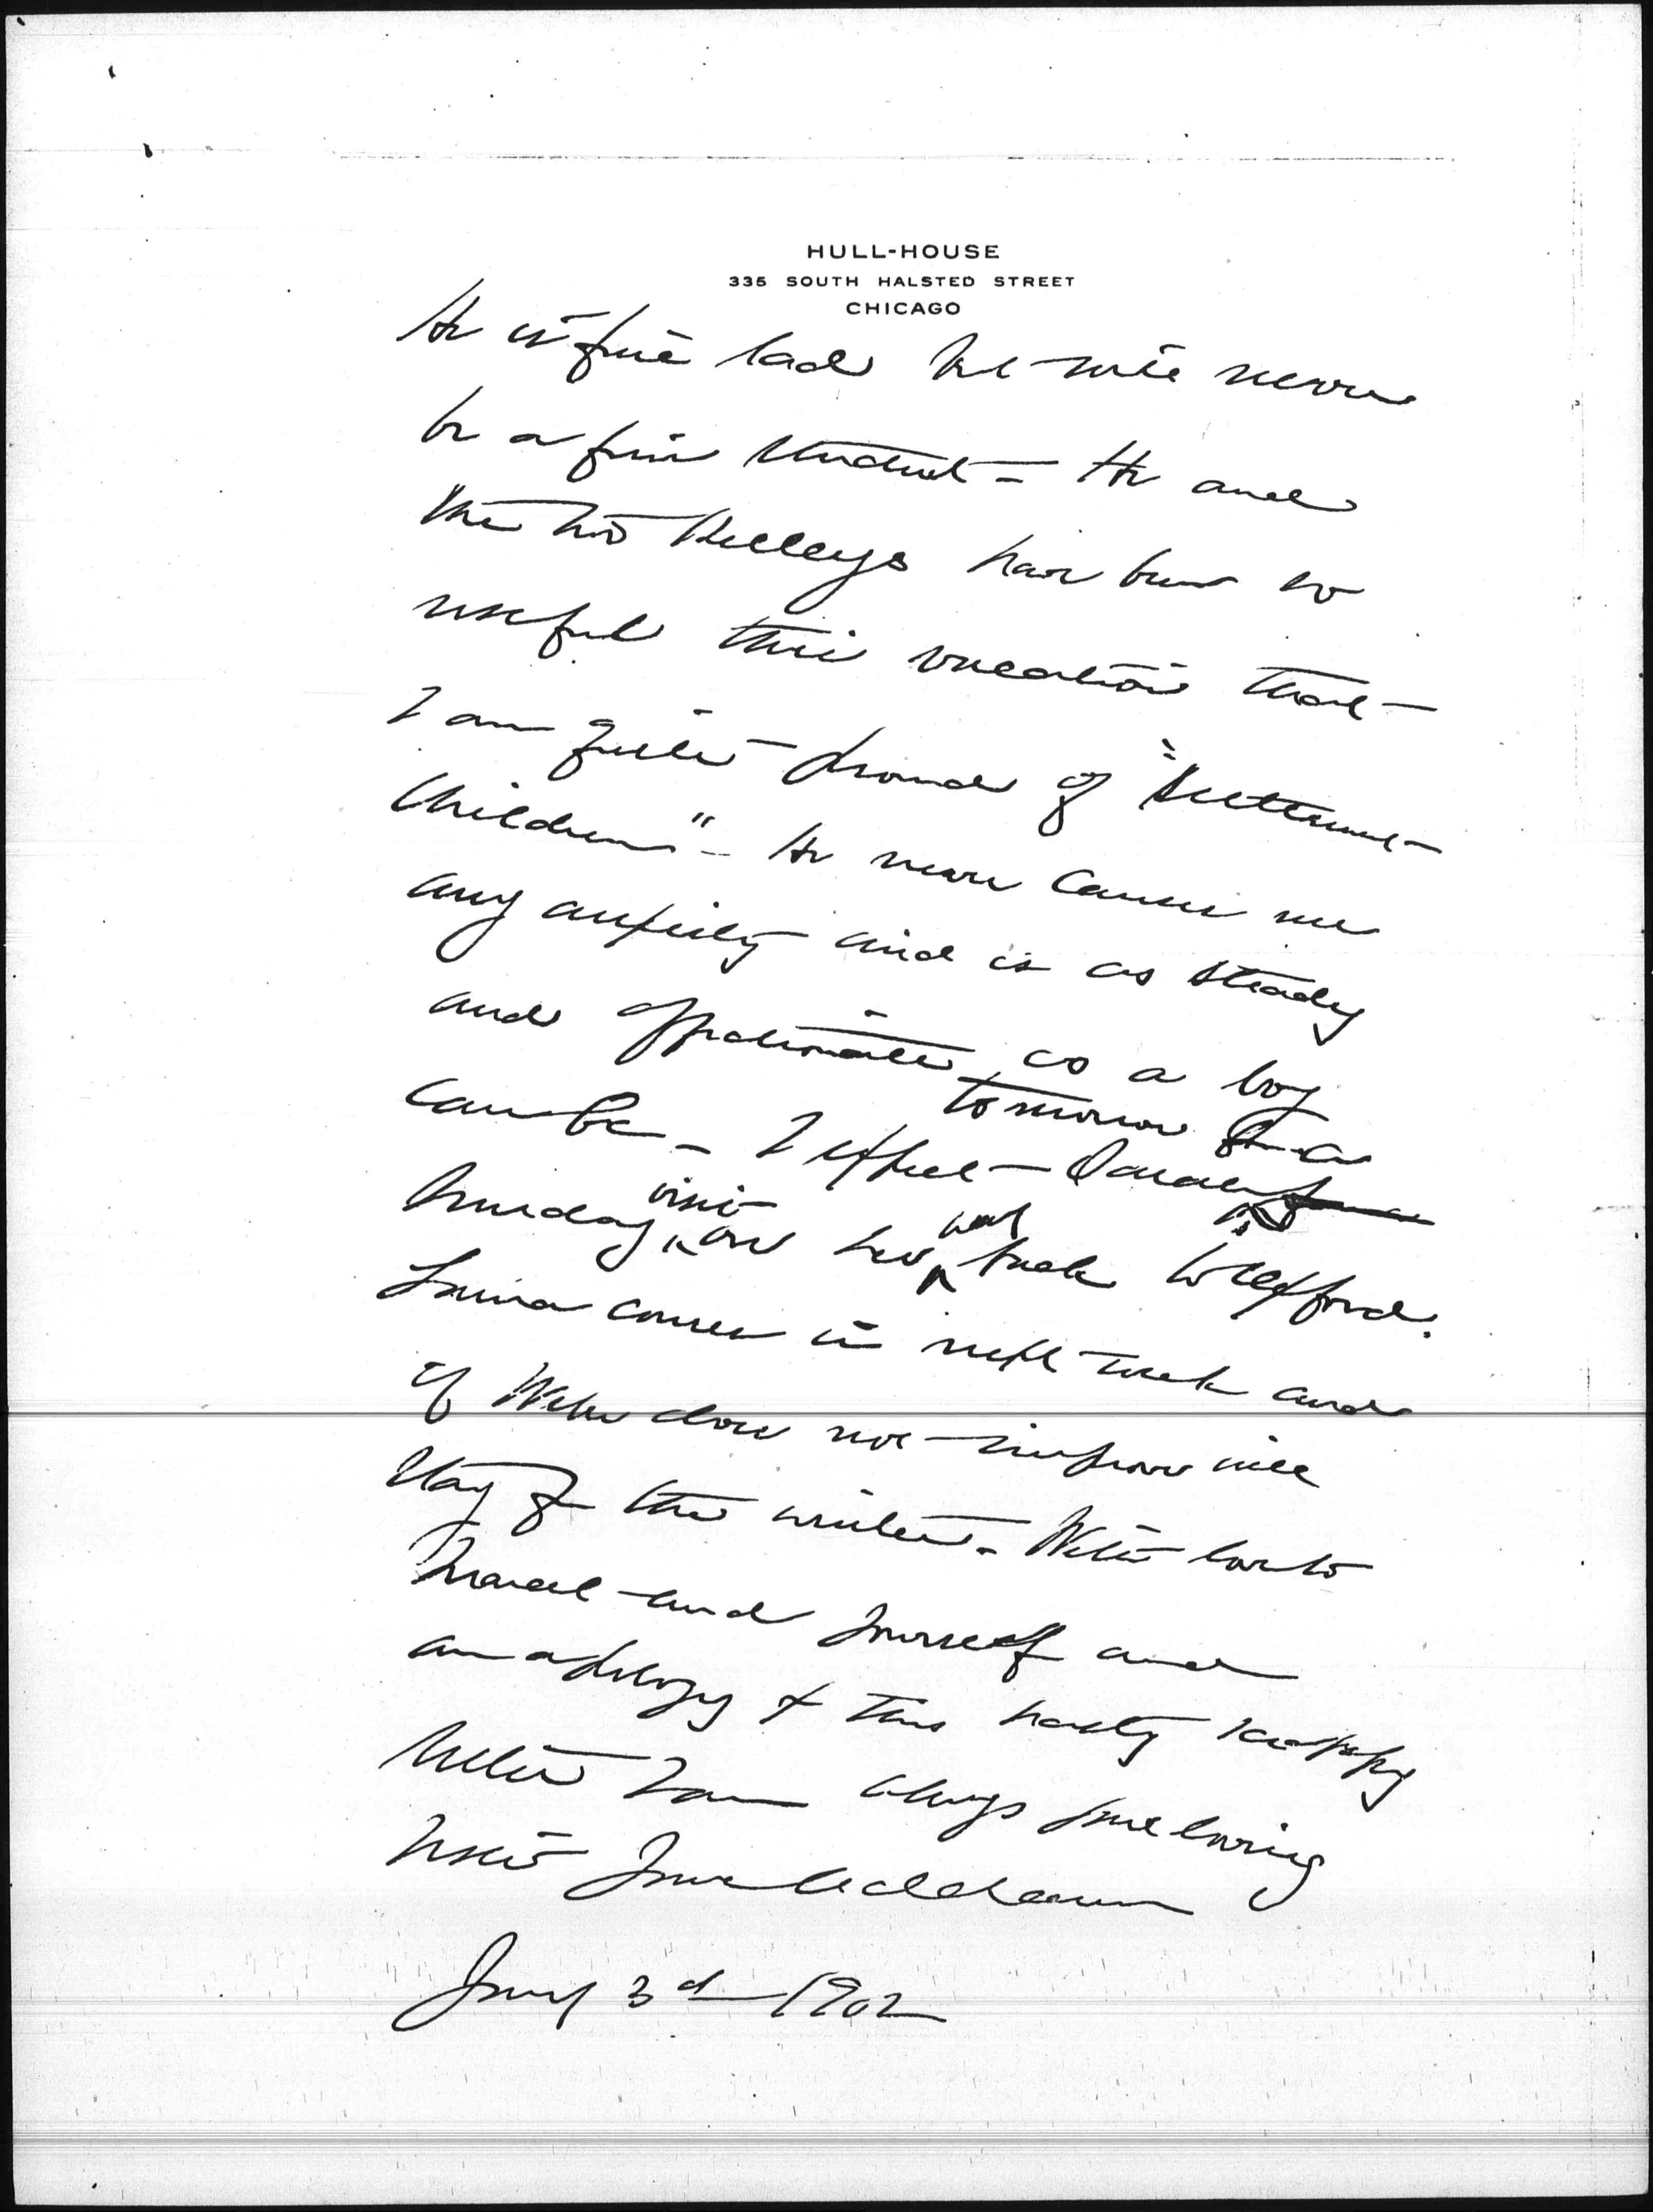 HULL-HOUSE
335 SOUTH HALSTED STREET
CHICAGO
He is fine lad but will never
be a fine student – He and
the two Kelleys have been so
useful this vacation that
I am quite proud of "Settlement
Children" – He never causes me
any anxiety and is as steady
and affectionate as a boy
can be – I expect Sarah tomorrow for a
Sunday visit on her way back to Rockford.
Louisa comes in next week and
if Weber does not improve will
stay for the winter. With love to
Marcet and yourself and
an apology for this hasty scrappy
letter I am always your loving
sister Jane Addams
Jany 3d 1902